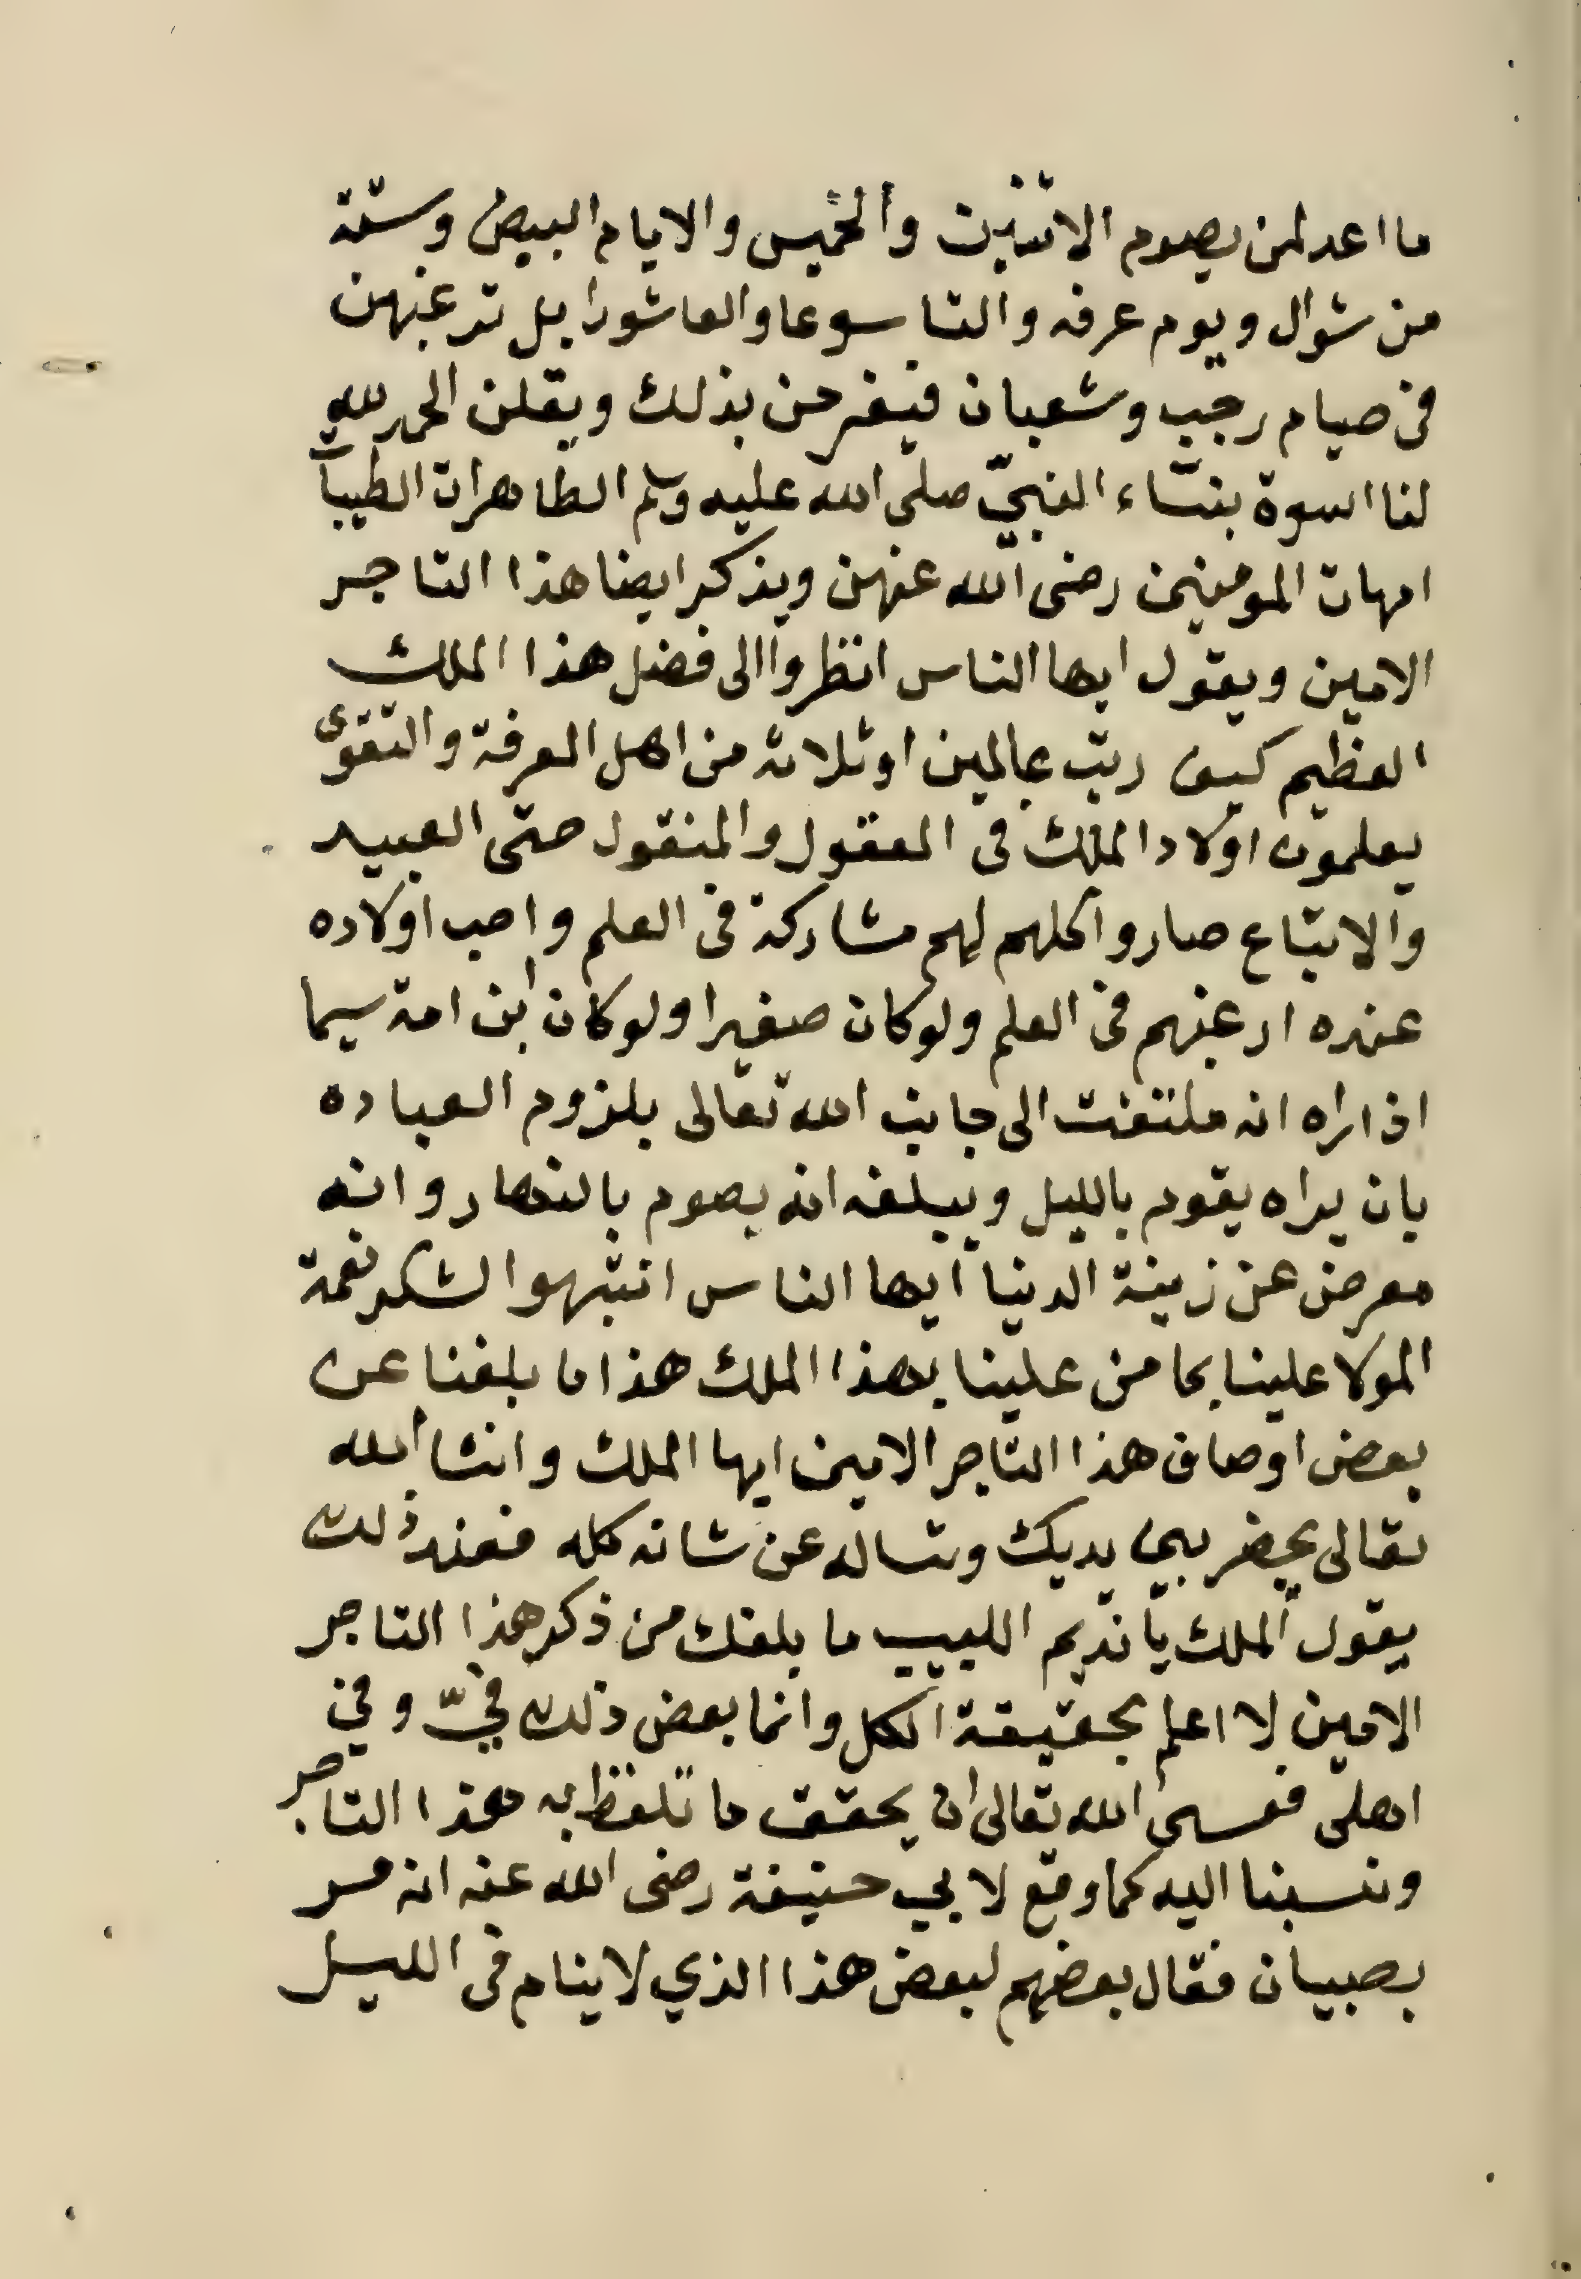 ما اعد لمن يصوم الاثنين والخميس والايام البيض وستة
من شوال ويوم عرفه والتاسوعا والعاشورا بل ترغبهن
في صيام رجب وشعبان فيفرحن بذلك ويقلن الحمد لله
لنا اسوة بنساء النبيّ صلى الله عليه وسلم الطاهرات الطيبآ
امهات المومنين رضى الله عنهن ويذكر ايضا هذا التاجر
الامين ويقول ايها الناس انظروا الى فضل هذا الملك
العظيم كيف رتب عالمين او ثلاثة من اهل المعرفة والتقوى
يعلمون اولاد الملك في المعقول والمنقول حتى العبيد
والاتباع صاروا كلهم لهم مشاركة في العلم واحب اولاده
عنده ارغبهم في العلم ولو كان صغيرا ولو كان ابن امة سيما
اذا راه انه ملتفت الى جانب الله تعالى بلزوم العباده
بان يراه يقوم بالليل ويبلغه انه يصوم بالنهار وانه
معرض عن زينة الدنيا ايها الناس انتبهوا لشكر نعمة
المولا علينا بما من علينا بهذا الملك هذا ما بلغنا عن
بعض اوصاف هذا التاجر الامين ايها الملك وانشا الله
تعالى يحضر بين يديك وتساله عن شانه كله فعند ذلك
يقول الملك يا نديم اللبيب ما بلغك من ذكر هذا التاجر
الامين لا اعلم بحقيقة الكل وانما بعض ذلك فيّ وفي
اهلى فعسى الله تعالى ان يحقق ما تلفظ به هذا التاجر
ونسبنا اليه كما وقع لابي حنيفة رضى الله عنه انه مر
بصبيان فقال بعضهم لبعض هذا الذي لا ينام في الليل